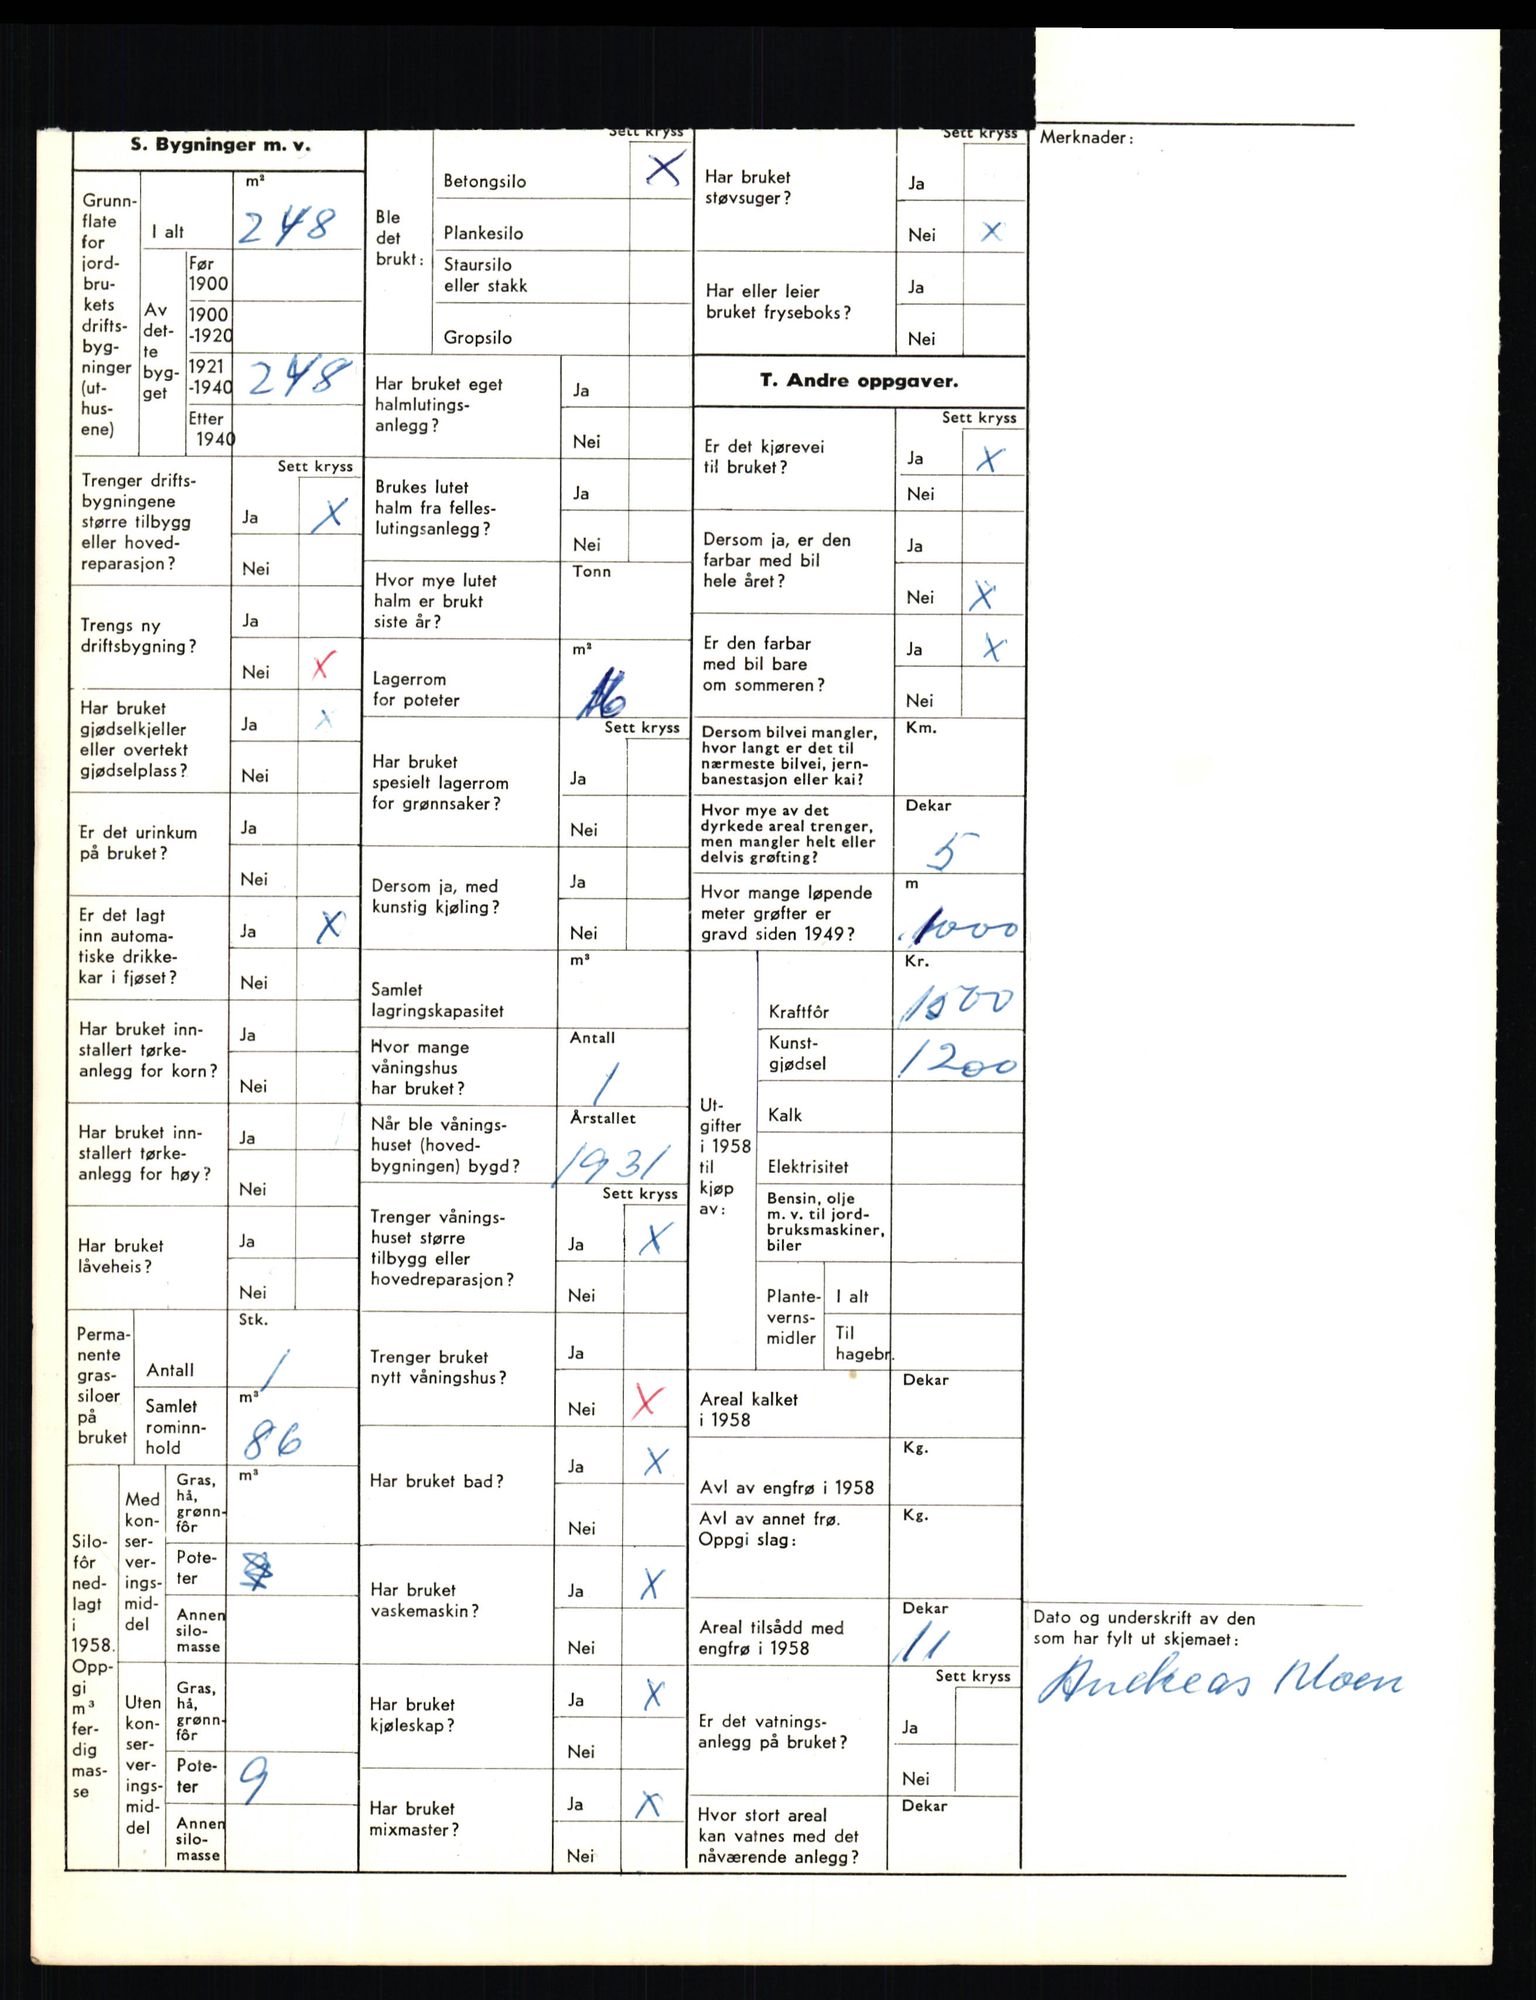 S. Bygninger m. v.
Grunn-
flate
for
jord-
bru-
kets
drifts-
byg-
ninger
(ut-
hus-
ene)
m²
I alt 248
Av
det-
te
byg-
get
Før
1900
1900
-1920
1921
-1940 248
Etter
1940
Sett kryss
Trenger drifts-
bygningene
større tilbygg
eller hoved-
reparasjon?
Ja X
Nei
Trengs ny
driftsbygning?
Ja
Nei X
Har bruket
gjødselkjeller
eller overtekt
gjødselplass?
Ja X
Nei
Er det urinkum
på bruket?
Ja
Nei
Er det lagt
inn automa-
tiske drikke-
kar i fjøset?
Ja X
Nei
Har bruket inn-
stallert tørke-
anlegg for korn?
Ja
Nei
Har bruket inn-
stallert tørke-
anlegg for høy?
Ja
Nei
Har bruket
låveheis?
Ja
Nei
Perma-
nente
gras-
siloer
på
bruket
Stk.
Antall 1
m³
Samlet
rominn-
hold
86
Silo-
fôr
ned-
lagt
i
1958.
Opp-
gi
m³
fer-
dig
mas-
se
Med
kon-
ser-
ver-
ings-
mid-
del
m³
Gras,
hå,
grønn-
fôr
Pote-
ter
Annen
silo-
masse
Uten
kon-
ser-
ver-
ings-
mid-
del
Gras,
hå,
grønn-
fôr
Pote-
ter
9
Annen
silo-
masse
Ble
det
brukt:
Sett kryss
Betongsilo X
Plankesilo
Staursilo
eller stakk
Gropsilo
Har bruket eget
halmlutings-
anlegg?
Ja
Nei
Brukes lutet
halm fra felles-
lutingsanlegg?
Ja
Nei
Hvor mye lutet
halm er brukt
siste år?
Tonn
Lagerrom
for poteter
m²
Sett kryss
Har bruket
spesielt lagerrom
for grønnsaker?
Ja
Nei
Dersom ja, med
kunstig kjøling?
Ja
Nei
Samlet
lagringskapasitet
m³
Hvor mange
våningshus
har bruket?
Antall
1
Når ble vånings-
huset (hoved-
bygningen) bygd?
Årstallet
1931
Sett kryss
Trenger vånings-
huset større
tilbygg eller
hovedreparasjon?
Ja X
Nei
Trenger bruket
nytt våningshus?
Ja
Nei X
Har bruket bad?
Ja X
Nei
Har bruket
vaskemaskin?
Ja X
Nei
Har bruket
kjøleskap?
Ja X
Nei
Har bruket
mixmaster?
Ja X
Nei
Sett kryss
Har bruket
støvsuger?
Ja
Nei X
Har eller leier
bruket fryseboks?
Ja
Nei
T. Andre oppgaver.
Sett kryss
Er det kjørevei
til bruket?
Ja X
Nei
Dersom ja, er den
farbar med bil
hele året?
Ja
Nei X
Er den farbar
med bil bare
om sommeren?
Ja X
Nei
Dersom bilvei mangler,
hvor langt er det til
nærmeste bilvei, jern-
banestasjon eller kai?
Km.
Hvor mye av det
dyrkede areal trenger,
men mangler helt eller
delvis grøfting?
Dekar
5
Hvor mange løpende
meter grøfter er
gravd siden 1949?
m
1000
Ut-
gifter
i 1958
til
kjøp
av:
Kr.
Kraftfôr 1500
Kunst-
gjødsel 1200
Kalk
Elektrisitet
Bensin, olje
m. v. til jord-
bruksmaskiner,
biler
Plante-
verns-
midler
I alt
Til
hagebr.
Areal kalket
i 1958
Dekar
Avl av engfrø i 1958
Kg.
Avl av annet frø.
Oppgi slag:
Kg.
Areal tilsådd med
engfrø i 1958
Dekar
11
Sett kryss
Er det vatnings-
anlegg på bruket?
Ja
Nei
Hvor stort areal
kan vatnes med det
nåværende anlegg?
Dekar
Merknader:
Dato og underskrift av den
som har fylt ut skjemaet:
Andreas Moen